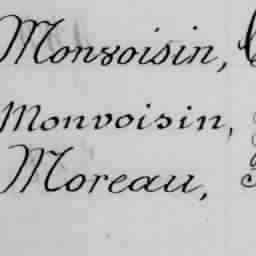 Monvoisin,
Monvoisin,
Moreau,